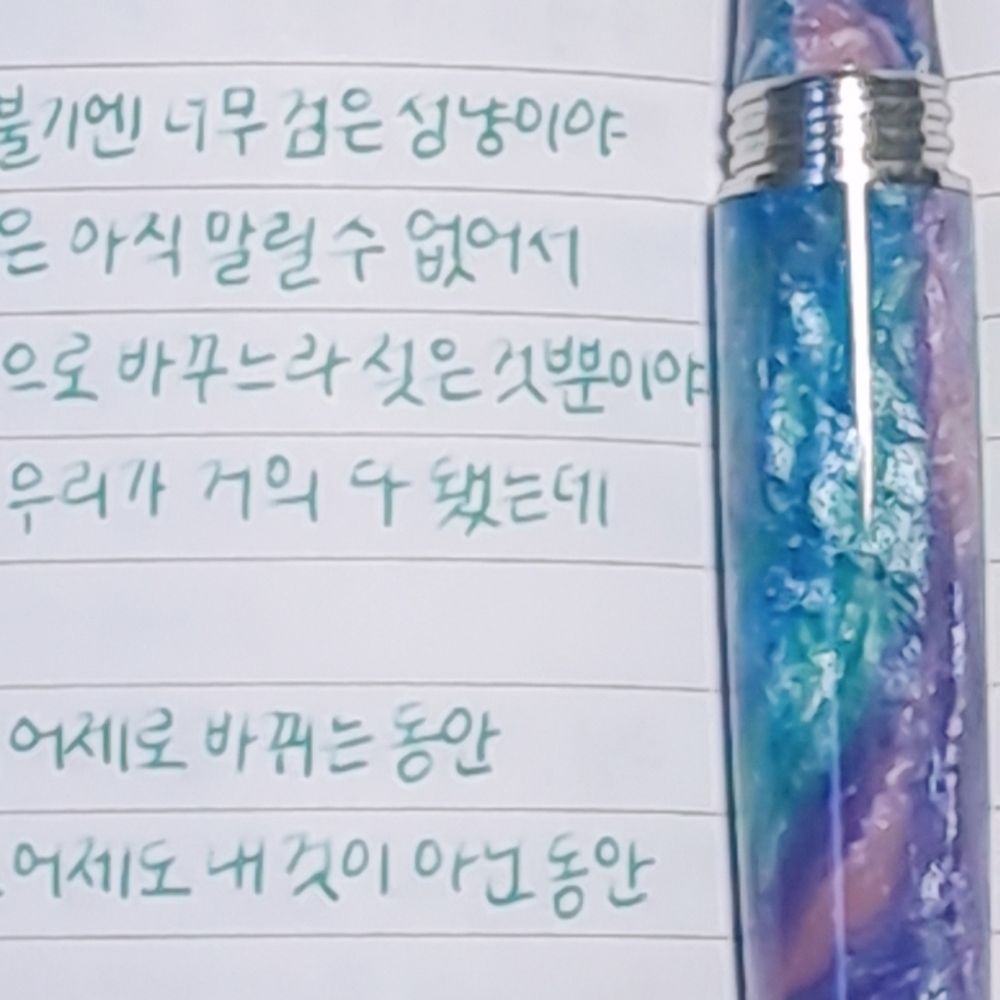 불기엔 너무 검은 성냥이야
은 아직 말릴 수 없어서
으로 바꾸느라 젖은 것뿐이야
우리가 거의 다 됐는데
어제로 바뀌는 동안
어제도 내 것이 아닌 동안